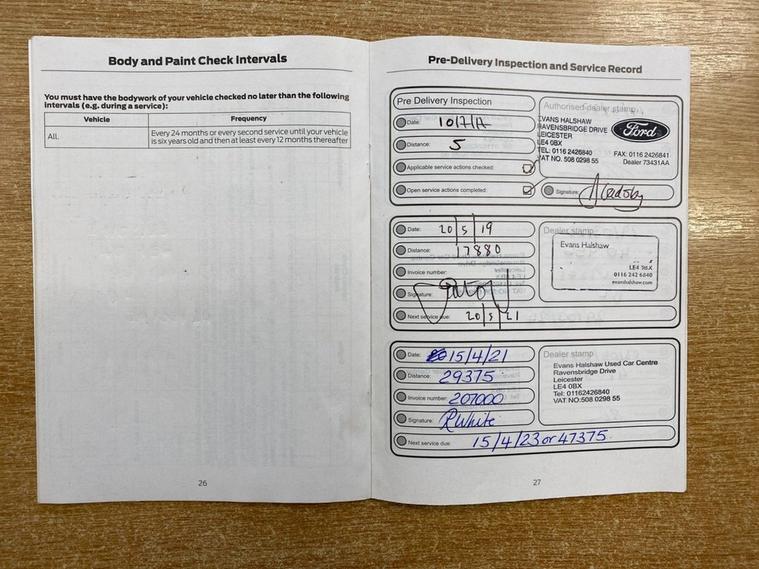 Body and Paint Check Intervals
You must have the bodywork of your vehicle checked no later than the following
intervals (e.g. during a service):
Vehicle Frequency
All. Every 24 months or every second service until your vehicle
is six years old and then at least every 12 months thereafter
26
Pre-Delivery Inspection and Service Record
Pre Delivery Inspection
Date:
Distance: 5
Applicable service actions checked:
Open service actions completed:
Authorised dealer stamp
EVANS HALSHAW
RAVENSBRIDGE DRIVE
LEICESTER
LE4 0BX
TEL: 0116 2426840
VAT NO. 508 0298 55
Ford
FAX: 0116 2426841
Dealer 73431AA
Signature:
Date: 20/5/19
Distance: 17880
Invoice number:
Signature:
Next service due: 20/5/21
Dealer stamp
Evans Halshaw
LE4 0BX
0116 242 6840
evanshalshaw.com
Date: 15/4/21
Distance: 29375
Invoice number: 207000
Signature: RWhite
Next service due: 15/4/23 or 47375
Dealer stamp
Evans Halshaw Used Car Centre
Ravensbridge Drive
Leicester
LE4 0BX
Tel: 01162426840
VAT NO:508 0298 55
27